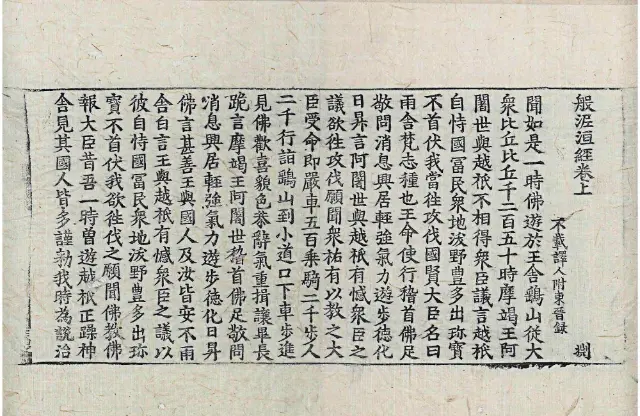 般泥洹經卷上
不載譯人附東晉錄
聞如是一時佛遊於王舍鷂山從大
衆比丘比丘千二百五十時摩竭王阿
闍世與越祇不相得衆臣議言越祇
自恃國冨民衆地沃野豊多出珎寶
不首伏我當往攻伐國賢大臣名曰
雨舍梵志種也王命使行稽首佛足
敬問消息興居輕強氣力遊步德化
日昇言阿闍世與越祇有憾衆臣之
議欲往攻伐願聞衆祐有以教之大
臣受命即嚴車五百乘騎二千步人
二千行詣鷂山到小道口下車步進
見佛歡喜貌色恭辭氣重揖讓畢長
跪言摩竭王阿闍世稽首佛足敬問
消息興居輕強氣力遊步德化日昇
佛言甚善王與國人及汝皆安不雨
舍白言王與越祇有憾衆臣之議以
彼自恃國冨民衆地沃野豊多出珎
寶不首伏我欲往伐之願聞佛教佛
報大臣昔吾一時曽遊越祇正躁神
舍見其國人皆多謹勑我時為說治